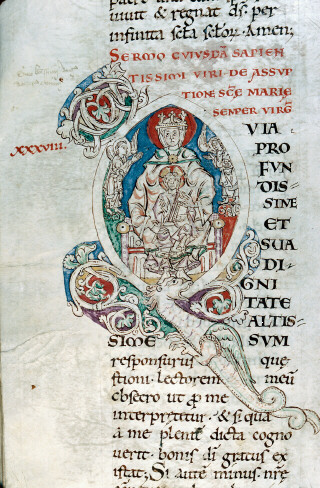 uiuit & regnat ds. per
infinita scła scłor. Amen;
SERMO CUIUSDĀ SAPIEN
TISSIMI VIRI DE ASSUP
TIONE SCĒ MARIE
SEMPER VIRG̅
XXXVIII.
QUIA
PRO
FUN
DIS
SINE
ET
SUA
DI
GNI
TATE
ALTIS
SIME SUM
responsurus que
stioni. lectorem meū
obsecro ut p me
interpretur. & si quā
a me pleniꝰ dicta cogno
uerit. bonis di gratus ex
istat; Si autē minus. nre